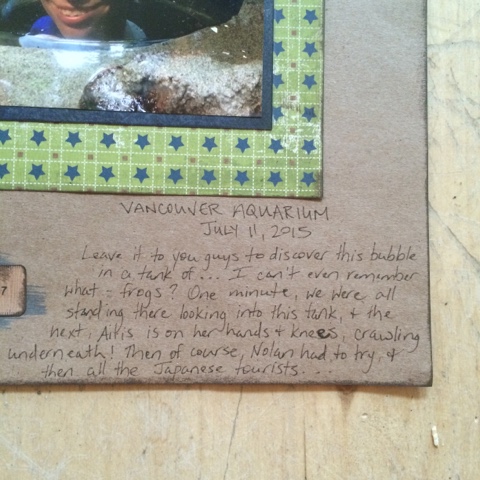 VANCOUVER AQUARIUM
JULY 11, 2015
Leave it to you guys to discover this bubble
in a tank of... I can't even remember
what - frogs? One minute, we were all
standing there looking into this tank, & the
next, Ailis is on her hands & knees, crawling
underneath! Then of course, Nolan had to try, &
then all the Japanese tourists...
7